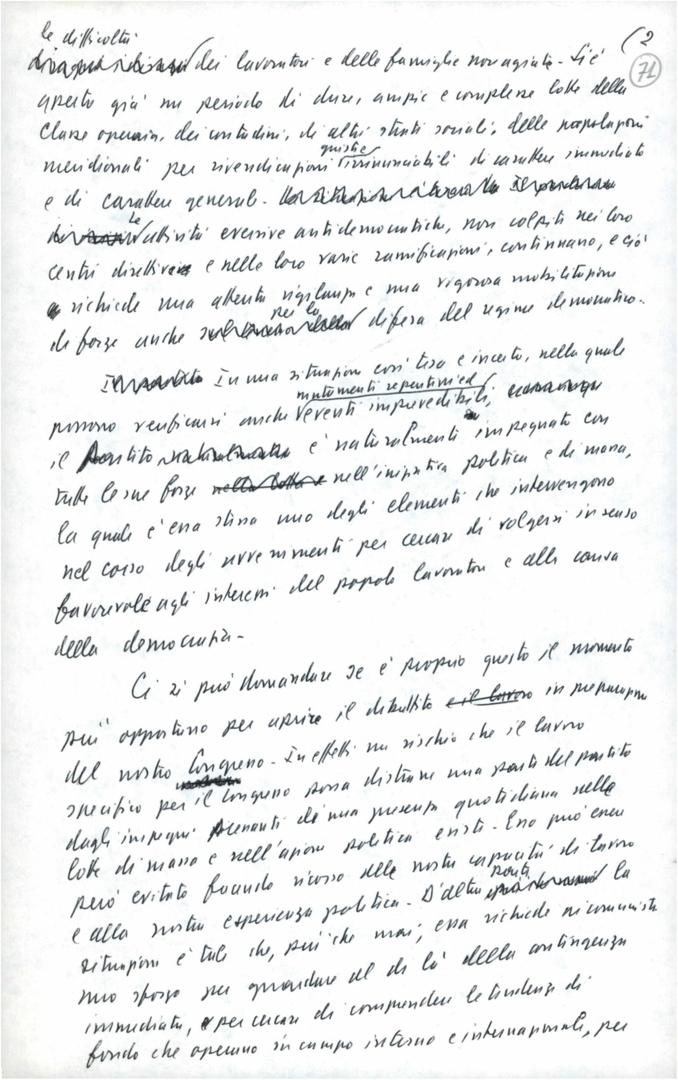 (2
71
le difficoltà
dei lavoratori e delle famiglie non agiate. Si è
aperto già un periodo di dure, ampie e complesse lotte della
classe operaia, dei contadini, di altri strati sociali, delle popolazioni
giuste
meridionali per rivendicazioni irrinunciabili di carattere immediato
e di carattere generale.
Le attività eversive antidemocratiche, non colpite nei loro
centri direttivi e nelle loro varie ramificazioni, continuano, e ciò
richiede una attenta vigilanza e una vigorosa mobilitazione
di forze anche per la difesa del regime democratico.
In una situazione così tesa e incerta, nella quale
mutamenti repentini ed
possono verificarsi anche eventi imprevedibili,
il Partito è naturalmente impegnato con
tutte le sue forze nella lotta e nell'iniziativa politica e di massa,
la quale è essa stessa uno degli elementi che intervengono
nel corso degli avvenimenti per cercare di volgerli in senso
favorevole agli interessi del popolo lavoratore e alla causa
della democrazia.
Ci si può domandare se è proprio questo il momento
più opportuno per aprire il dibattito e il lavoro in preparazione
del nostro Congresso. In effetti un rischio che il lavoro
specifico per il Congresso possa distrarre una parte del partito
dagli impegni di una presenza quotidiana nelle
lotte di massa e nell'azione politica esiste. Esso può essere
però evitato facendo ricorso alle nostre capacità di lavoro
e alla nostra esperienza politica. D'altra parte la
situazione è tale che, più che mai, essa richiede ai comunisti
uno sforzo per guardare al di là della contingenza
immediata, e per cercare di comprendere le tendenze di
fondo che operano in campo interno e internazionale, per